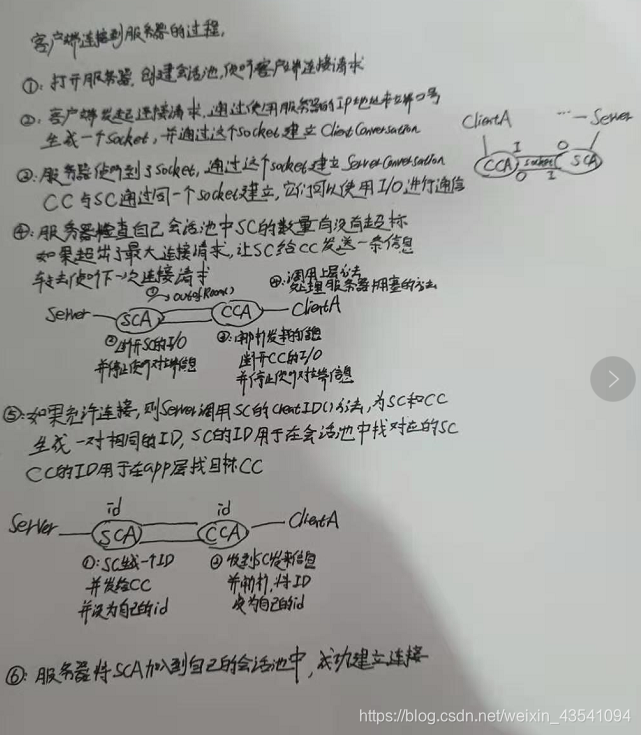 客户端连接到服务器的过程.
①: 打开服务器, 创建会话池, 侦听客户端连接请求
②: 客户端发起连接请求, 通过使用服务器的IP地址和端口号
生成一个Socket, 并通过这个Socket建立Client Conversation
ClientA
... Server
CCA
I
O
socket
O
I
SCA
③: 服务器侦听到了Socket, 通过这个socket建立Server Conversation
CC与SC通过同一个socket建立, 它们可以使用I/O进行通信
④: 服务器检查自己会话池中SC的数量有没有超标
如果超出了最大连接请求, 让SC给CC发送一条信息
转去侦听下一次连接请求
①→outofRoom()
④: 调用上层方法
处理服务器拥塞的方法
Server
SCA
CCA
ClientA
②断开SC的I/O
并停止侦听对端信息
③: 解析发来的信息
断开CC的I/O
并停止侦听对端信息
⑤: 如果允许连接, 则Server调用SC的creatID()方法, 为SC和CC
生成一对相同的ID, SC的ID用于在会话池中找对应的SC
CC的ID用于在app层找目标CC
id
id
Server
SCA
CCA
ClientA
①: SC生成一个ID
并发给CC
并设为自己的id
②收到SC发来信息
并解析, 将ID
设为自己的id
⑥: 服务器将SCA加入到自己的会话池中, 成功建立连接
https://blog.csdn.net/weixin_43541094